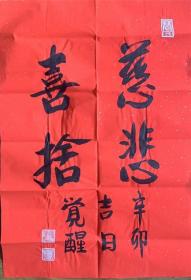 慈悲
喜捨
辛卯
吉日
覚醒